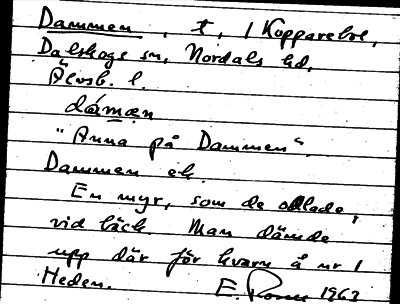 Dammen, t, 1 Kopparebol,
Dalskogs sn, Nordals hd,
Älvsb. l.
dámæn
"Anna på Dammen".
Dammen ek.
En myr, som de odlade,
vid bäck Man dämde
upp där för kvarn å nr 1
Heden. E. 1963